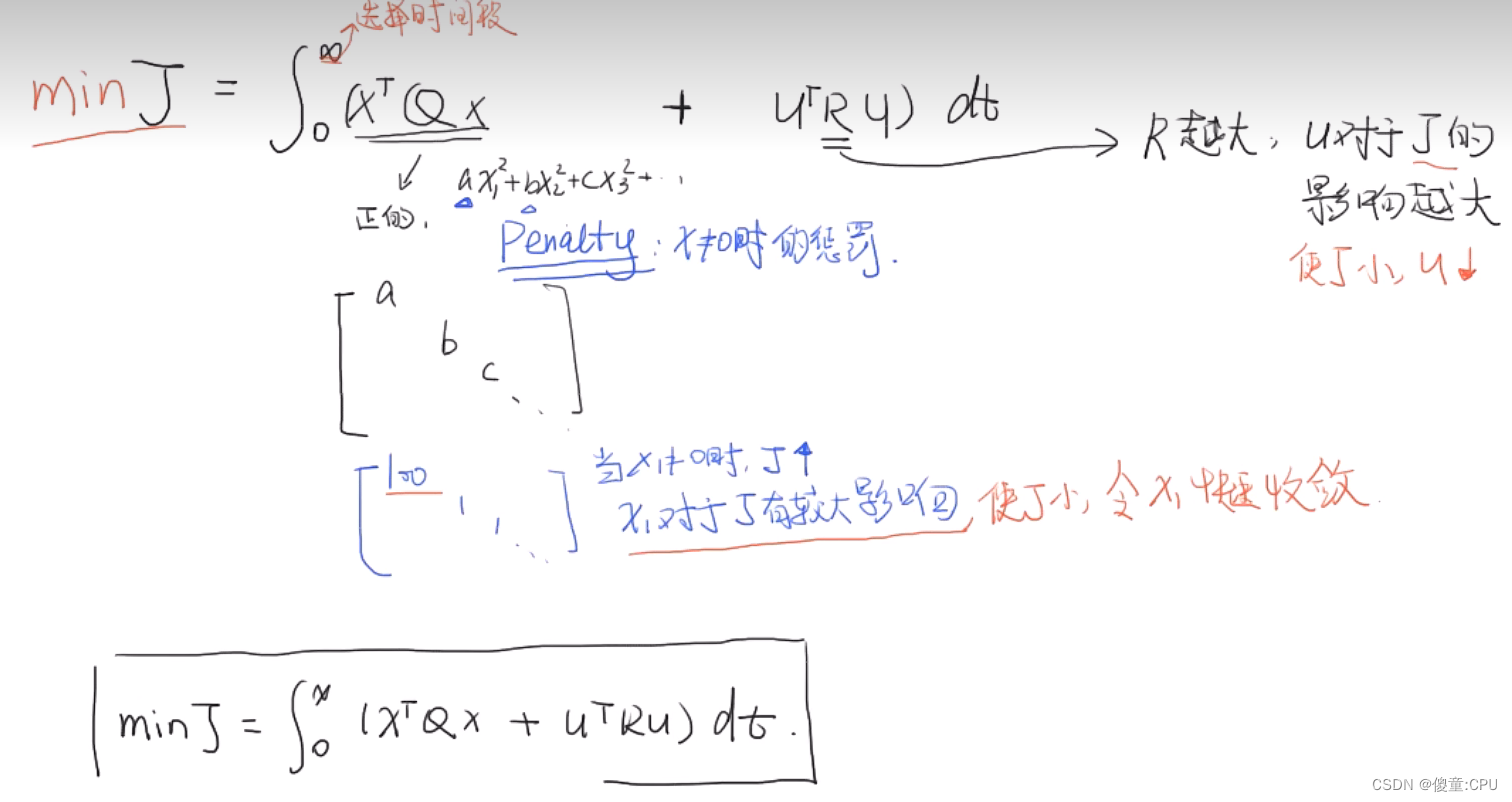 选择时间段
min J = ∫₀^∞ (xᵀQx + uᵀRu) dt
R越大，u对于J的
影响越大
使J小，u↓
正的，
ax₁²+bx₂²+cx₃²+…
Penalty：x≠0时的惩罚.
[a
b
c
⋱]
[100
1
1
⋱]
当x₁≠0时，J↑
x₁对于J有较大影响，使J小，令x₁快速收敛.
min J = ∫₀^∞ (xᵀQx + uᵀRu) dt.
CSDN @傻童:CPU